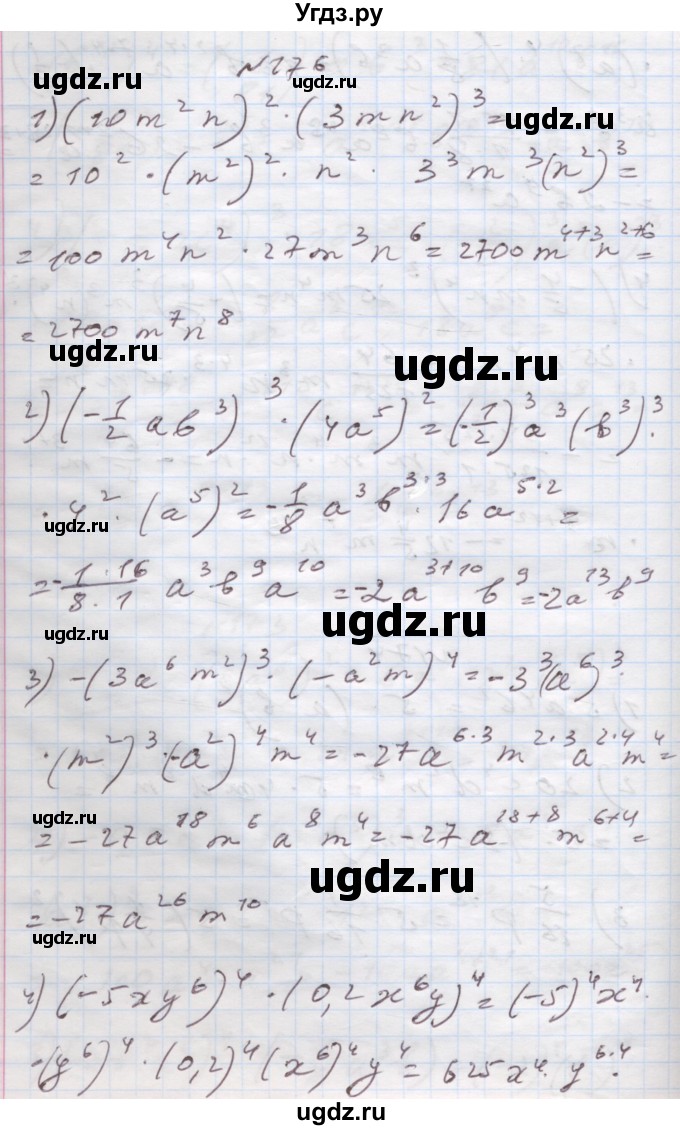 Угдз.ру
№176
ugdz.ru
1) (10m²n)² · (3mn²)³ =
ugdz.ru
= 10² · (m²)² · n² · 3³m³(n²)³ =
= 100m⁴n² · 27m³n⁶ = 2700m⁴⁺³n²⁺⁶ =
= 2700m⁷n⁸
ugdz.ru
ugdz.ru
2) (-1/2 ab³)³ · (4a⁵)² = (-1/2)³a³(b³)³ ·
· 4² · (a⁵)² = -1/8 a³b³·³ · 16a⁵·² =
ugdz.ru
= -1·16/8·1 a³b⁹a¹⁰ = -2a³⁺¹⁰b⁹ = -2a¹³b⁹
ugdz.ru
ugdz.ru
3) -(3a⁶m²)³ · (-a²m)⁴ = -3³(a⁶)³ ·
· (m²)³ · (-a²)⁴m⁴ = -27a⁶·³m²·³a²·⁴m⁴ =
ugdz.ru
= -27a¹⁸m⁶a⁸m⁴ = -27a¹⁸⁺⁸m⁶⁺⁴ =
ugdz.ru
= -27a²⁶m¹⁰
ugdz.ru
4) (-5xy⁶)⁴ · (0,2x⁶y)⁴ = (-5)⁴x⁴ ·
· (y⁶)⁴ · (0,2)⁴(x⁶)⁴y⁴ = 625x⁴ · y⁶·⁴ ·
ugdz.ru